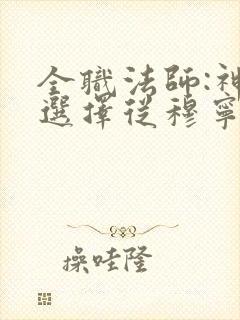 全職法師:神
選擇從穆寧
操哇隆